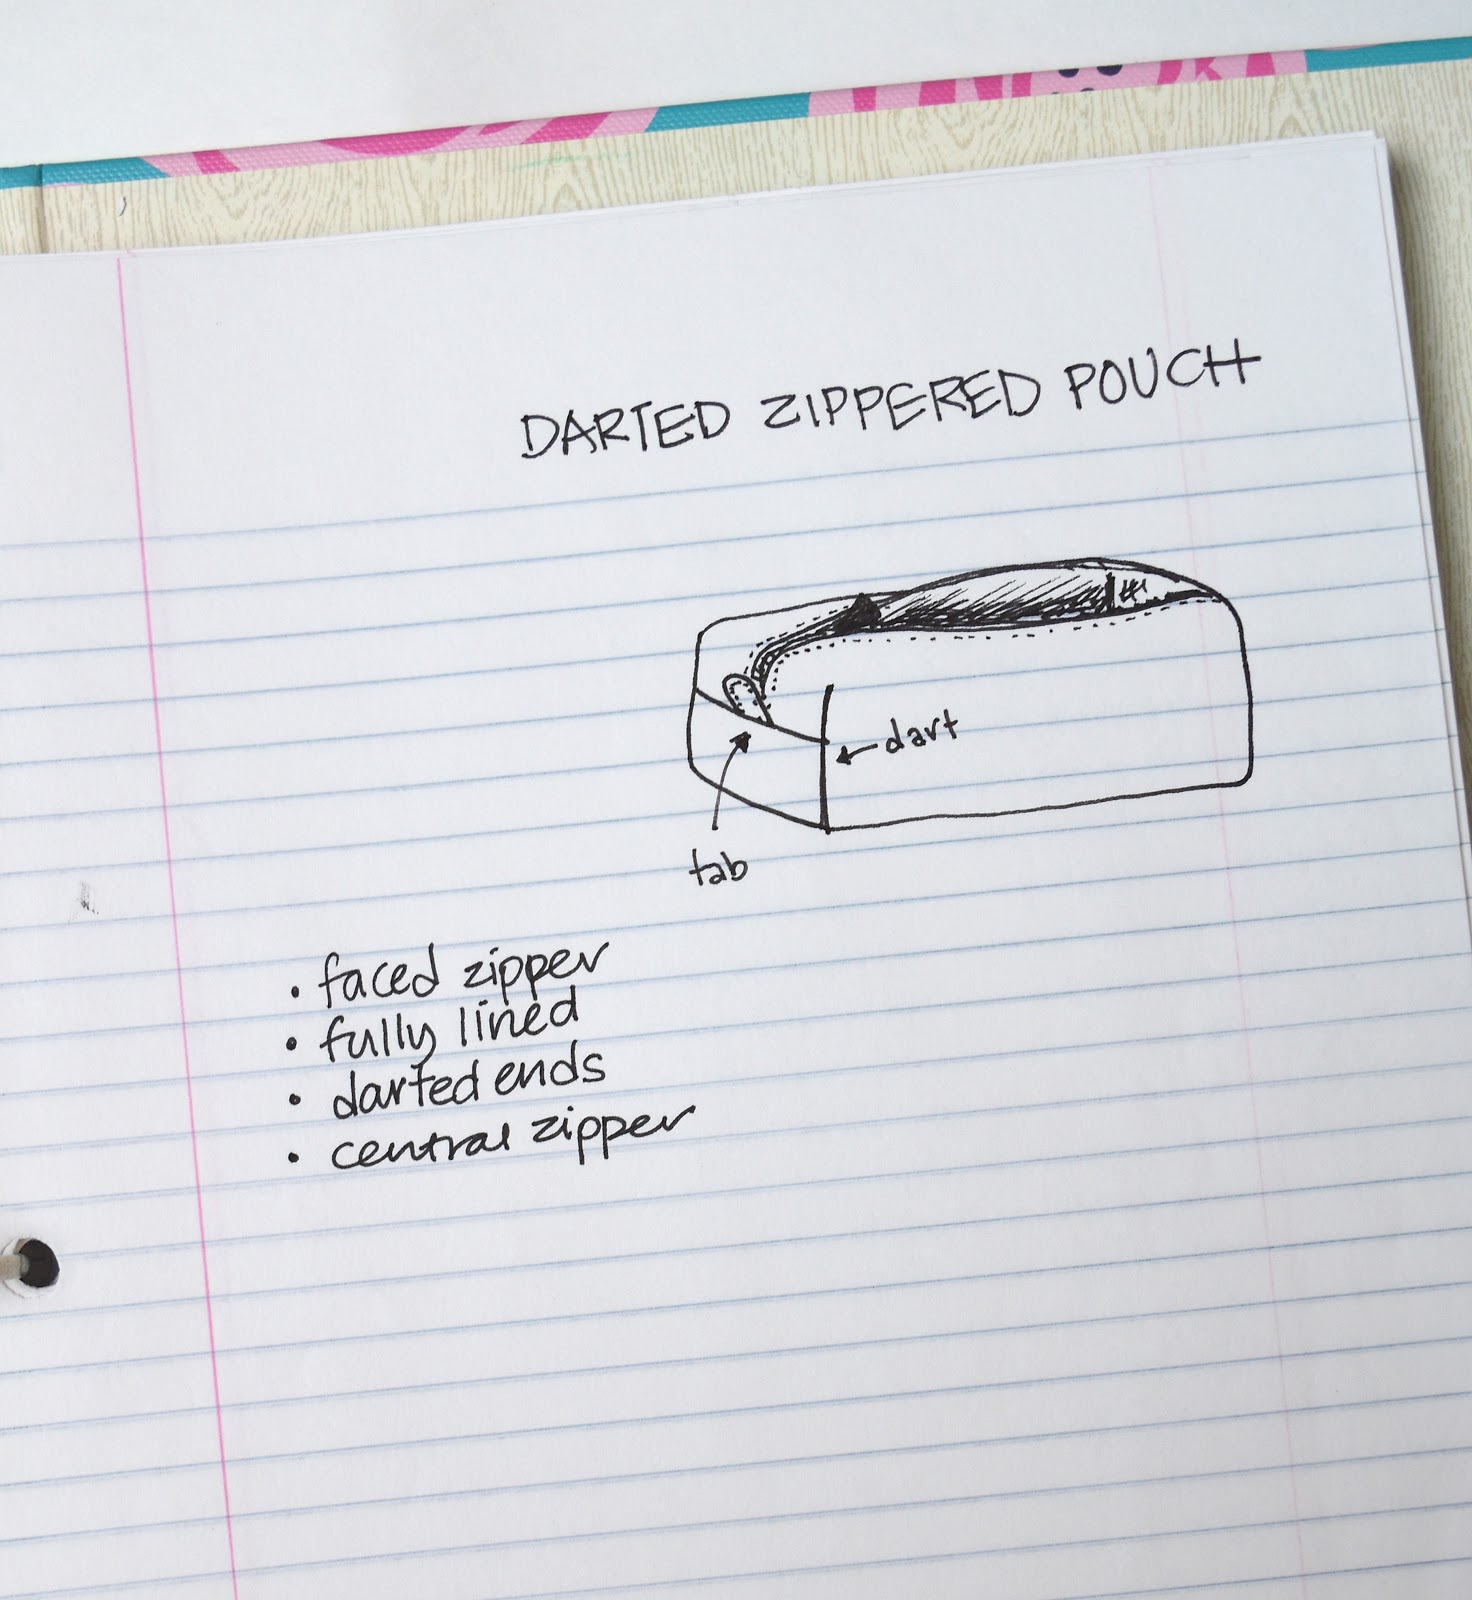 DARTED ZIPPERED POUCH
dart
tab
• faced zipper
• fully lined
• darted ends
• central zipper